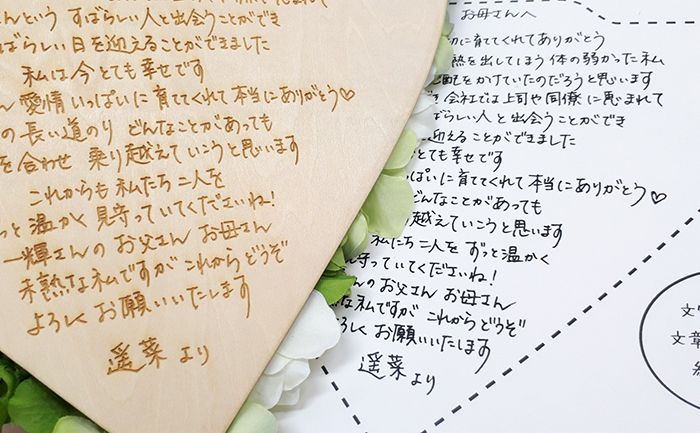 んという すばらしい人と出会うことができ
ばらしい日を迎えることができました
私は今とても幸せです
ん 愛情いっぱいに育ててくれて本当にありがとう♡
の長い道のり どんなことがあっても
を合わせ 乗り越えていこうと思います
これからも私たち二人を
っと温かく見守っていてくださいね!
一輝さんのお父さん お母さん
未熟な私ですが これからどうぞ
よろしくお願いいたします
遥菜より
お母さんへ
切に育ててくれてありがとう
熱を出してしまう体の弱かった私
配をかけていたのだろうと思います
き 会社では上司や同僚に恵まれて
ばらしい人と出会うことができ
に迎えることができました
とても幸せです
っぱいに育ててくれて本当にありがとう♡
どんなことがあっても
越えていこうと思います
私たち二人を ずっと温かく
守っていてくださいね!
んのお父さん お母さん
な私ですが これからどうぞ
ろしくお願いいたします
遥菜より
文
文章